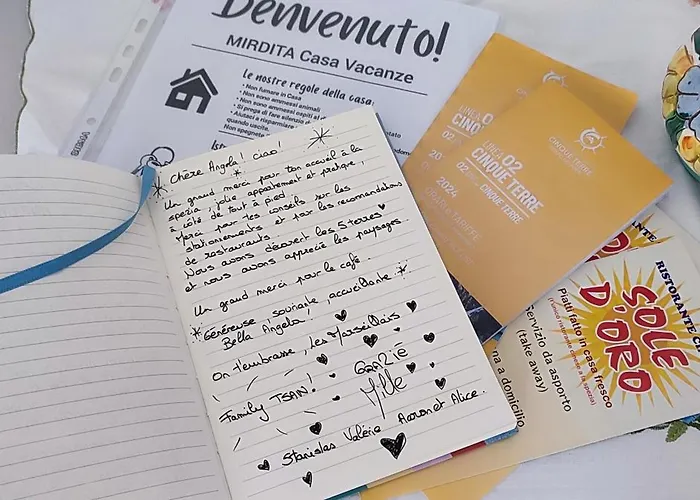 Benvenuto!
MIRDITA Casa Vacanze
Le nostre regole della casa:
• Non fumare in Casa
• Non sono ammessi animali
• Non sono ammessi ospiti al
• Si prega di fare silenzio d
• Aiutaci a risparmiare
quando uscite.
Non spegnete
Chère Angela! Ciao!
Un grand merci pour ton accueil à la
spezia, jolie appartement et pratique,
à côté de tout à pied.
Merci pour tes conseils sur les
stationnements et par les recomandations
de restaurants.
Nous avons découvert les 5 terres
et nous avons apprécié les paysages.
Un grand merci pour le café.
Généreuse, souriante, accueillante.
Bella Angela!
On t'embrasse, Les Marseillais
GRAZIE
Mille
Family TSAN!
Stanislas Valérie Aaron et Alice.
LINEA 0
CINQ
02.
20
CINQUE TERRE
LINEA 02
CINQUE TERRE
02. CINQUE TERRE
2024
ORARI & TARIFFE
RISTORANTE
SOLE
D'ORO
Piatti fatto in casa fresco
(l'unico ristorante cinese a la spezia)
Servizio da asporto
(take away)
a domicilio